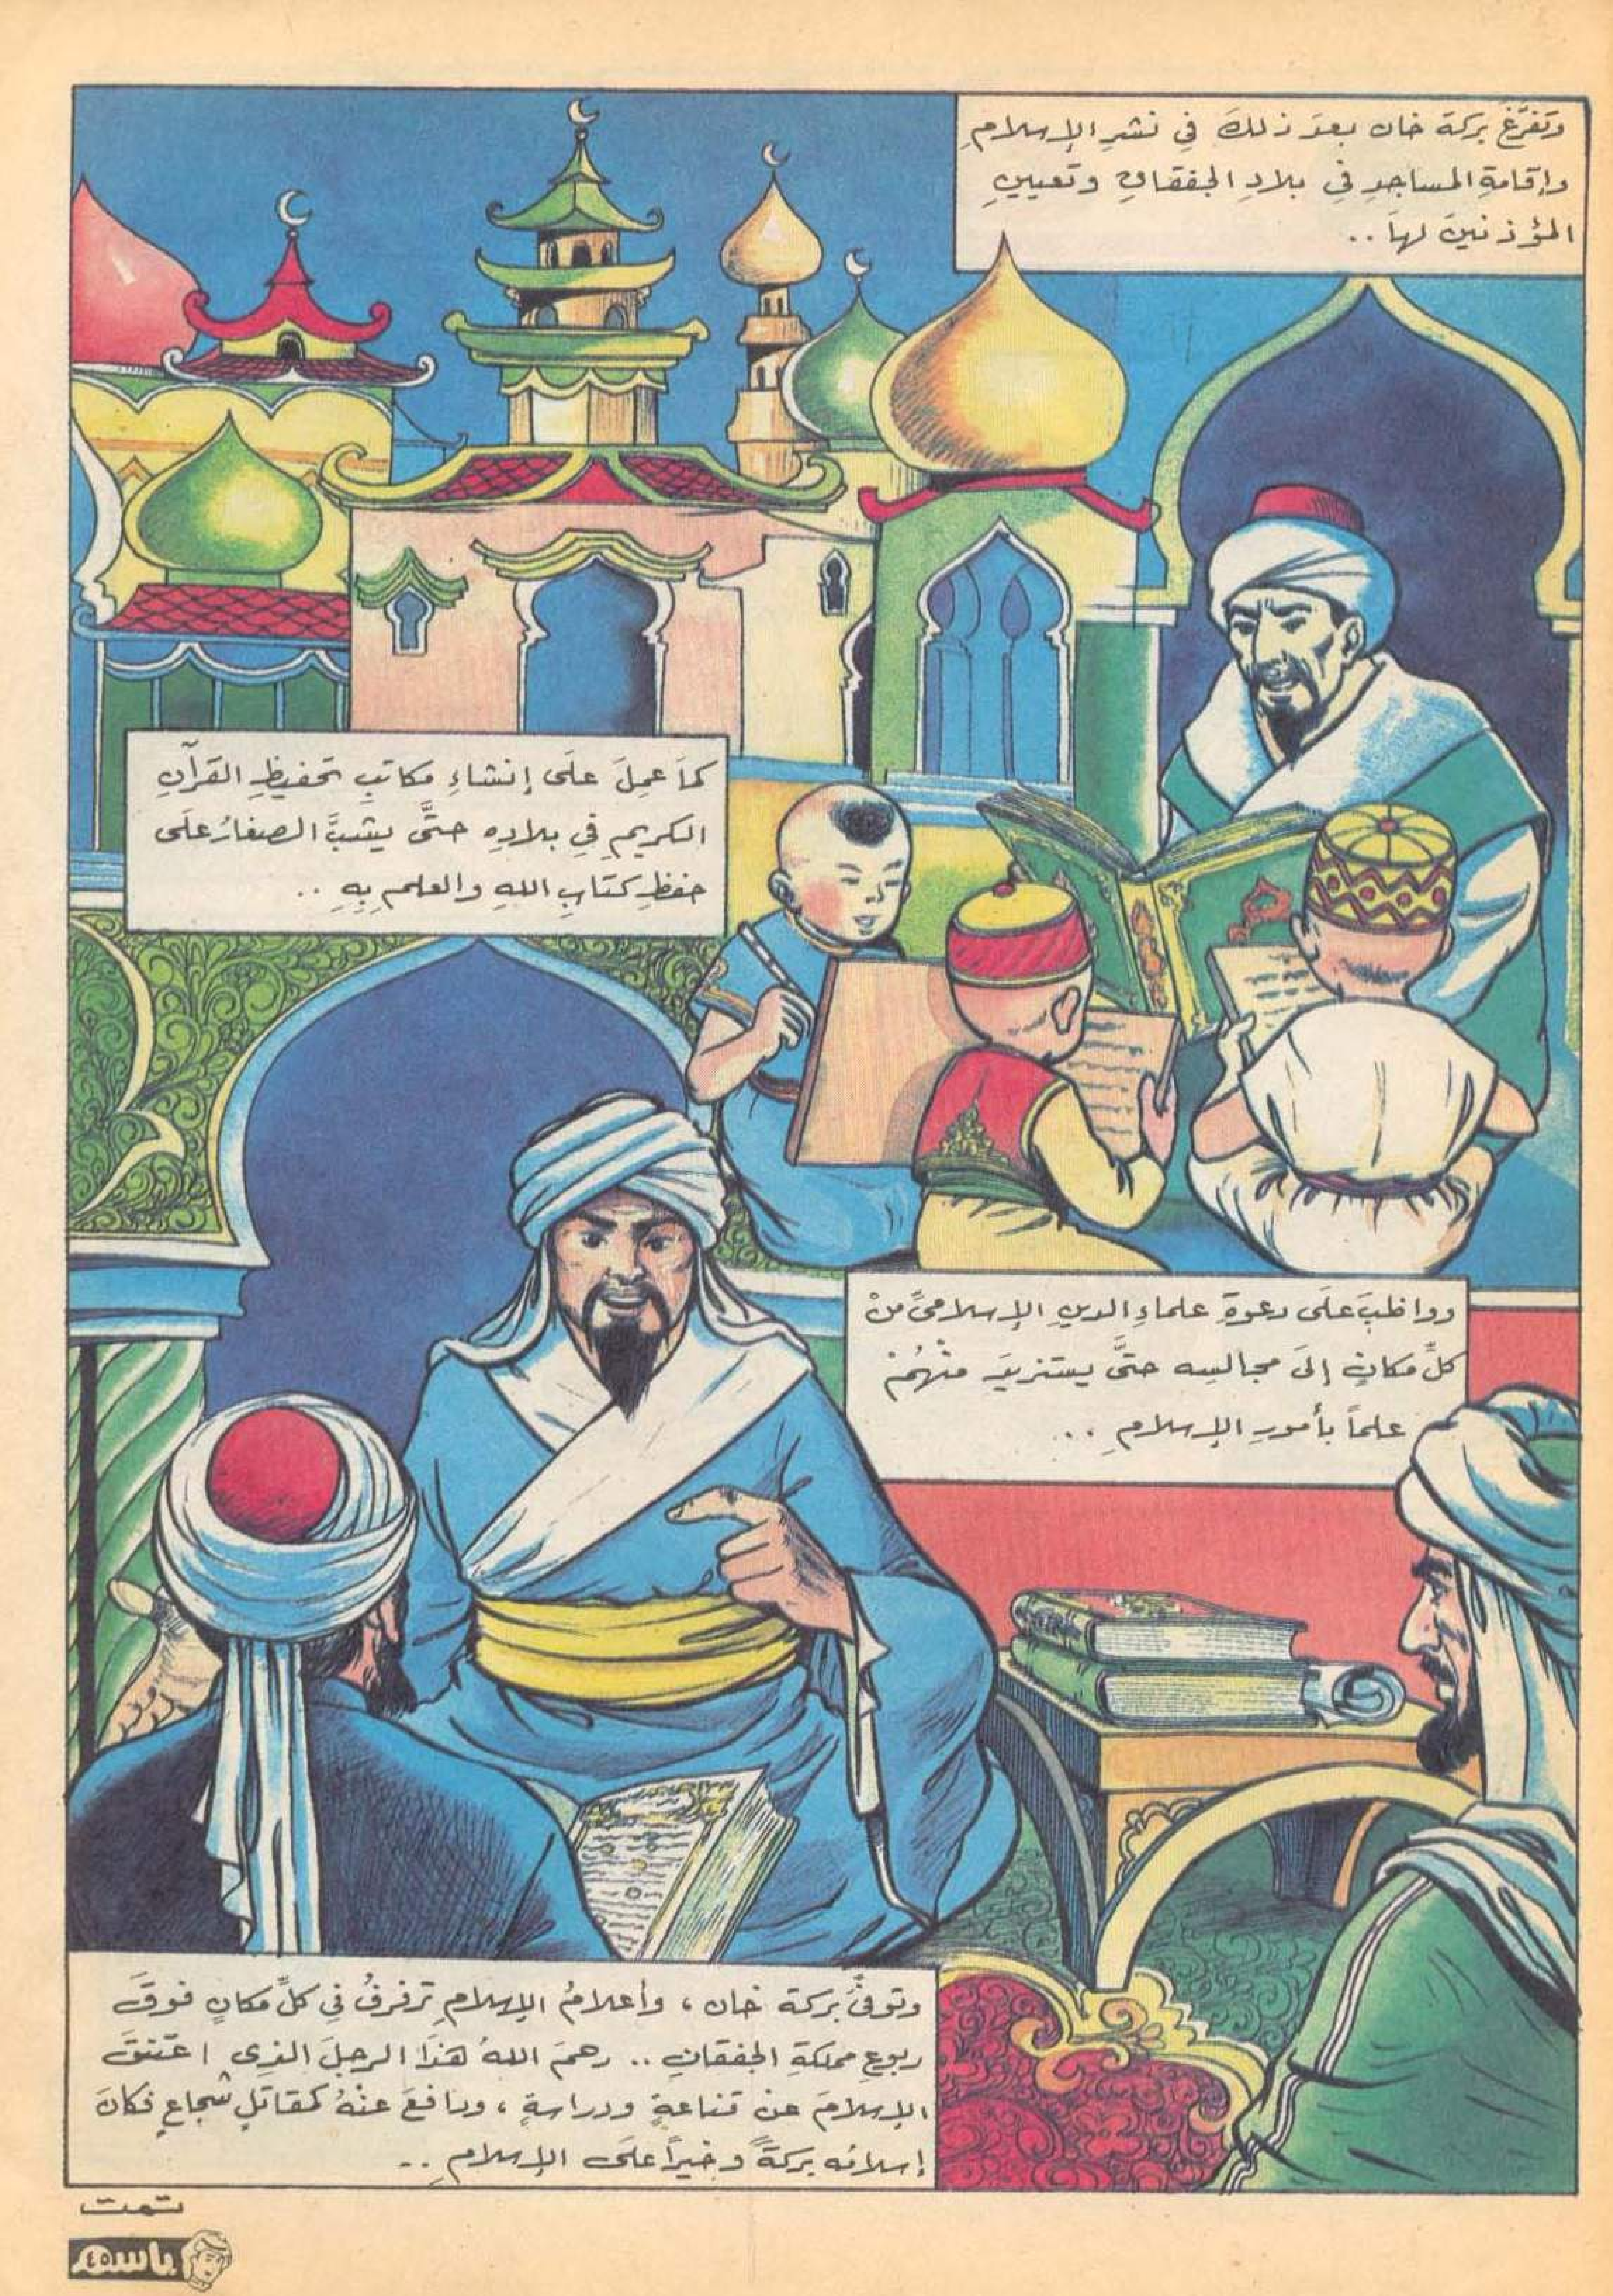 وتفرّغ بركة خان بعدَ ذلكَ في نشرِ الإسلامِ
وإقامةِ المساجدِ في بلادِ الجفقاقِ وتعيينِ
المؤذنينَ لها ..
كماَ عمِلَ علَى إنشاءِ مكاتبِ تحفيظِ القرآنِ
الكريمِ في بلادِهِ حتَّى يشبَّ الصغارُ علَى
حفظِ كتابِ اللهِ والعلمِ بِهِ ..
وواظبَ علَى دعوةِ علماءِ الدينِ الإسلاميِّ منْ
كلِّ مكانٍ إلَى مجالسِه حتَّى يستزيدَ منْهُمْ
علماً بأمورِ الإسلامِ ..
وتوفيَّ بركة خان ، وأعلامُ الإسلامِ ترفرفُ في كلِّ مكانٍ فوقَ
ربوعِ مملكةِ الجفقاقِ .. رحمَ اللهُ هذَا الرجلَ الذِي اعتنقَ
الإسلامَ عن قناعةٍ ودراسةٍ ، ودافعَ عنْهُ كمقاتلٍ شجاعٍ فكانَ
إسلامُه بركةً وخيراً علَى الإسلامِ ..
تمت
باسم ٤٥